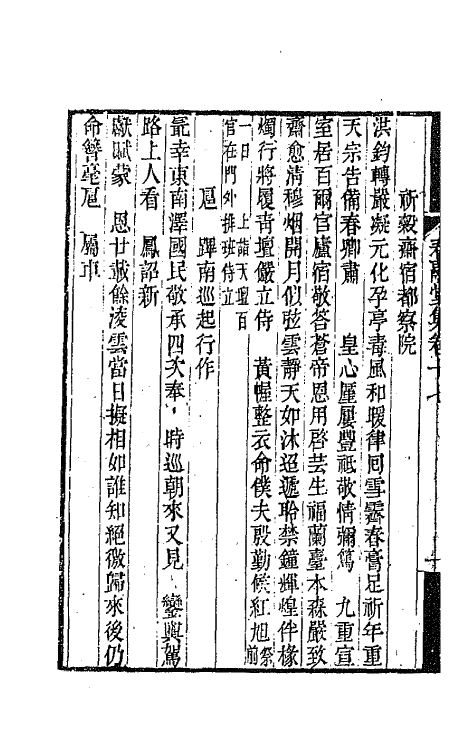 春融堂集卷十七
祈穀齋宿都察院
洪鈞轉嚴凝元化孕亭毒風和暖律囘雪霽春膏足祈年重
天宗告備春卿肅 皇心厪屢豐祗敬情彌篤 九重宣
室居百爾官廬宿敬答蒼帝恩用啓芸生福蘭臺本森嚴致
齋愈清穆烟開月似弦雲靜天如沐迢遞聆禁鐘輝煌伴椽
燭行將履靑壇嚴立侍 黃幄整衣命僕夫殷勤候紅旭祭前
一日 上詣天壇百
官在門外排班侍立
扈 蹕南巡起行作
最幸東南澤國民敬承四次奉 時巡朝來又見 鑾輿駕
路上人看 鳳詔新
獻賦蒙 恩廿載餘淩雲當日擬相如誰知絕徼歸來後仍
命簪毫扈 屬車